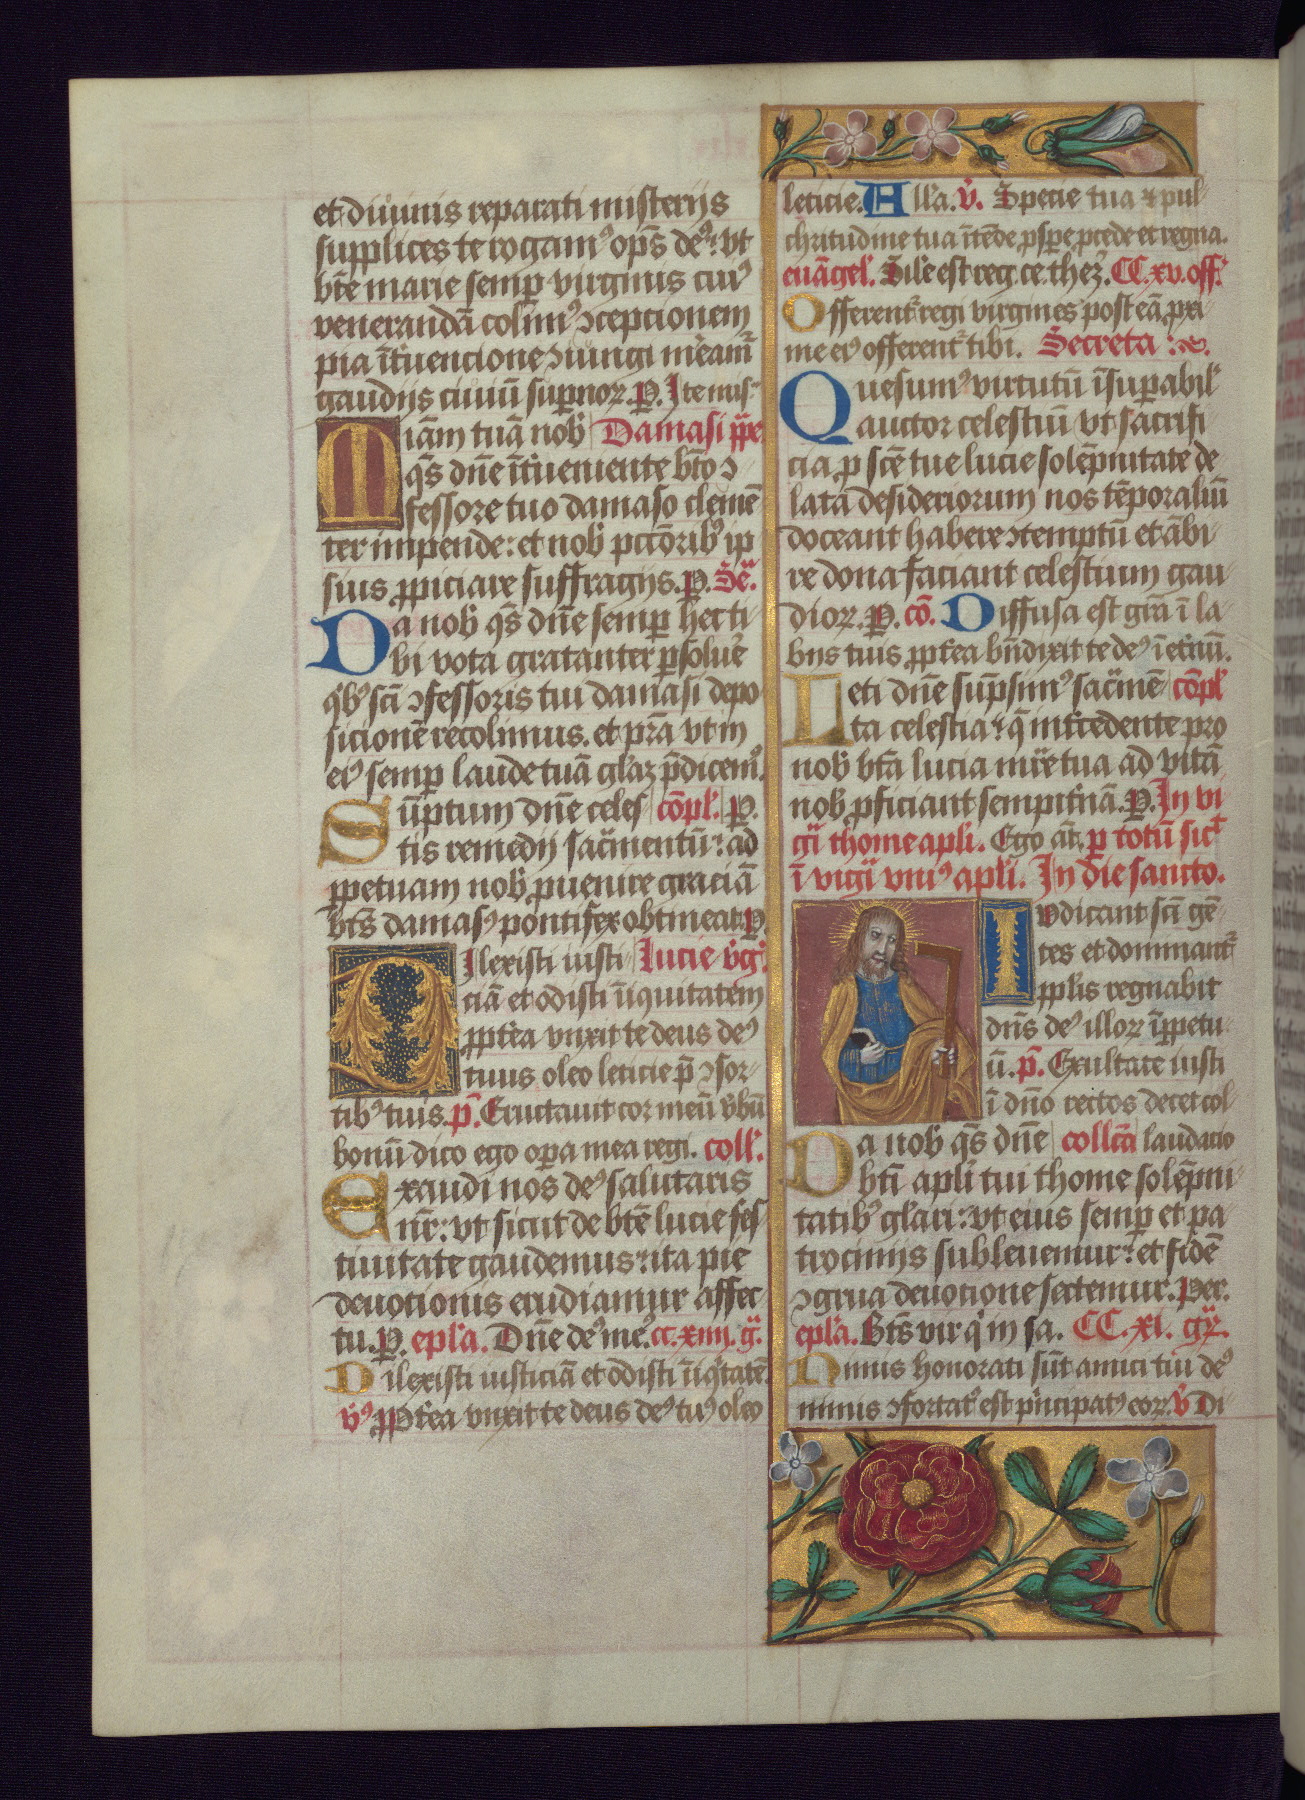 et diuinis reparati misterijs
supplices te rogamꝰ op̄s deꝰ: vt
btē marie semp̱ virginis cuiꝰ
venerandā colimꝰ ꝯcepcionem
pia īt̓uencione ꝯiungi meāmr̄
gaudijs ciuiū sup̱noꝝ. P̱. Ite mis-
iām tuā nob̓ Damasi pp̄e
qs̄ dn̄e īt̓ueniente bt̄o ꝯ
fessore tuo damaso clemē
ter impende: et nob̓ pccōribꝰ ip
sius ꝓpiciare suffragijs. P̱. Sē.
Da nob̓ qs̄ dn̄e semp̱ hec ti-
bi vota gratanter p̱solue᷑
qͥbꝰ scī ꝯfessoris tui damasi depo
sicionē recolimus. et pr̄a vt in
eiꝰ semp̱ laude tuā gl̓aꝫ p̄dicemꝰ.
Sūptum dn̄e celes cōpl̓. P̱.
tis remedij sac̄mentū: ad
ꝑpetuam nob̓ ꝓuenire graciā
bt̄s damasꝰ pontifex obtineat. P̱.
Dilexisti iusti- Lucie v̓gͥs.
ciā et odisti īiquitatem
ꝓpt̓ea vnxit te deus deꝰ
tuus oleo leticie p̄ ꝯsor-
tibꝰ tuis. p̄s. Eructauit cor meū v̓bū
bonū dico ego oꝑa mea regi. coll̓.
Exaudi nos deꝰ salutaris
nr̄: vt sicut de btē lucie fes-
tiuitate gaudemus: ita pie
deuotionis erudiamur affec
tu. P̱. epl̓a. Dn̄e deꝰ meꝰ. cc. xiiij. gͣ.
Dilexisti iusticiā et odisti īiqͥtatē
v̓ꝰ Ꝓpt̓ea vnxit te deus deꝰ tuꝰ oleo
leticie. All̓a. v̓. Specie tua ⁊ pul-
chritudine tua ītēde ꝓsꝑe ꝓcede et regna.
euāgel̓. Sil̓e est reg. ce. thezͦ. CC. xv. off̓.
Offerent᷑ regi virgines post eā ꝓxi
me eiꝰ offerent᷑ tibi. Secreta:
Quesumꝰ virtutū īsuꝑabil̓
auctor celestiū vt sacrifi
cia ꝓ scē tue lucie solēpnitate de
lata desideriorum nos tēporaliū
doceant habere ꝯtemptū et ābi-
re dona faciant celestium gau-
dioꝝ. P̱. cō. Diffusa est gr̄a ī la-
bijs tuis ꝓpt̓ea bn̄dixit te deꝰ ī et̓nū.
Leti dn̄e sūpsimꝰ sac̄mē cōpl̓
ta celestia: q̄ int̓cedente pro
nob̓ btā lucia mr̄e tua ad vitā
nob̓ ꝓficiant sempit̓nā. P̱. In vi
gͥl̓ thome apl̓i. Ego āt. ꝑ totū sict̓
ī vigͥl̓ vniꝰ apl̓i. In die sancto.
Iudicant scī gē-
tes et dominant᷑
ppl̓is regnabit
dn̄s deꝰ illoꝝ īꝑpetu-
ū. p̄s. Exultate iusti
ī dn̄o rectos decet col-
Da nob̓ qs̄ dn̄e collcā laudatio
bt̄i apl̓i tui thome solēpni-
tatibꝰ gl̓ari: vt eius semp̱ et pa-
trocinijs subleuemur: et fidē
ꝯgrua deuotione sectemur. Per.
epl̓a. Bt̄s vir qͥ in sa. CC. xl. gͬ.
Nimis honorati sūt amici tui deꝰ
nimis ꝯfortatꝰ est pͥncipatꝰ eoꝝ. v̓ Di-